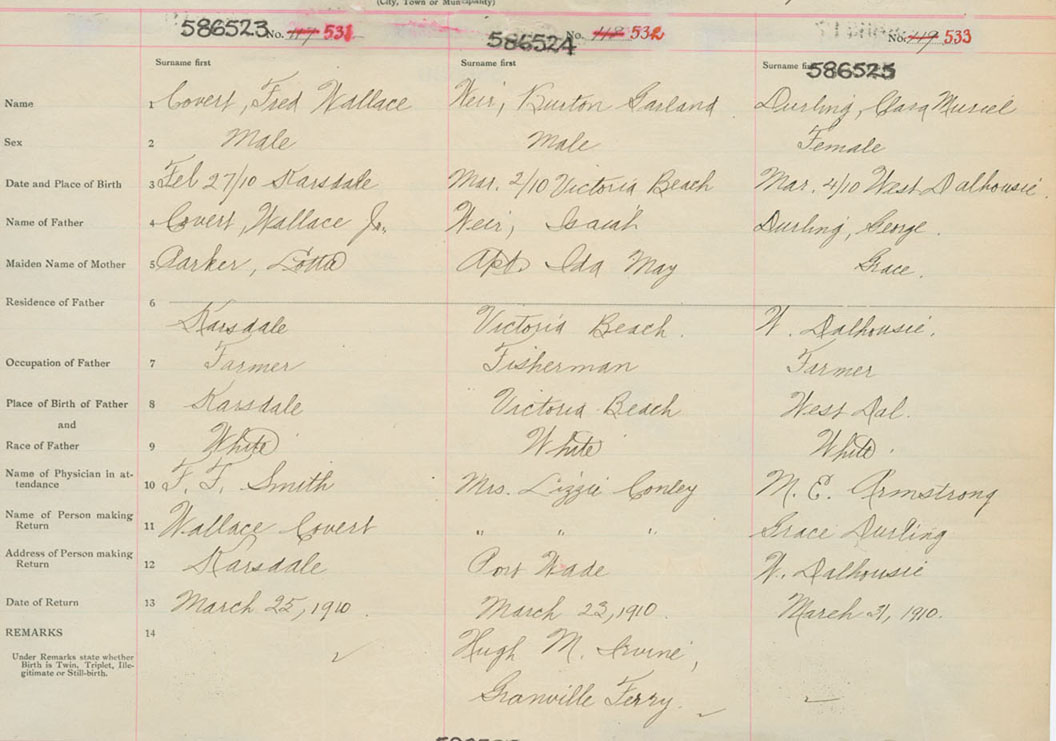 (City, Town or Municipality)
586523 No. 117 531 586524 No. 118 532 No. 119 533
Surname first Surname first Surname first 586525
Name 1 Covert, Fred Wallace Weir, Burton Garland Durling, Clara Muriel
Sex 2 Male Male Female
Date and Place of Birth 3 Feb 27/10 Karsdale Mar. 2/10 Victoria Beach Mar. 4/10 West Dalhousie.
Name of Father 4 Covert, Wallace Jr. Weir, Isaiah Durling, George.
Maiden Name of Mother 5 Parker, Lotta Apt Ida May Grace.
Residence of Father 6
Karsdale Victoria Beach. W. Dalhousie.
Occupation of Father 7 Farmer Fisherman Farmer
Place of Birth of Father 8 Karsdale Victoria Beach West Dal.
and
Race of Father 9 White White White.
Name of Physician in at-
tendance 10 F. F. Smith Mrs. Lizzie Conley M. E. Armstrong
Name of Person making
Return 11 Wallace Covert " " " Grace Durling
Address of Person making
Return 12 Karsdale Port Wade W. Dalhousie
Date of Return 13 March 25, 1910. March 23, 1910. March 31, 1910.
REMARKS 14
Hugh M. Irvine,
Under Remarks state whether
Birth is Twin, Triplet, Ille-
gitimate or Still-birth.
Granville Ferry.